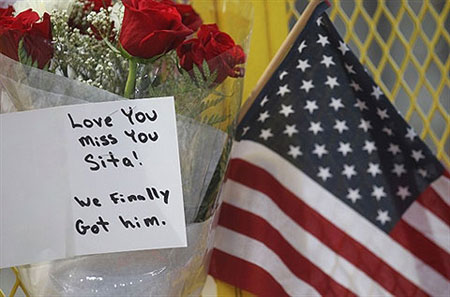 Love You
miss You
Sita!
We Finally
Got him.